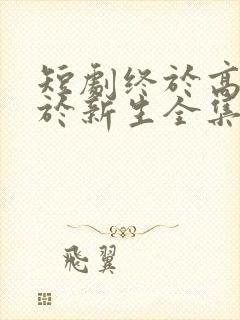 短劇终於高
於新生全集
飛翼